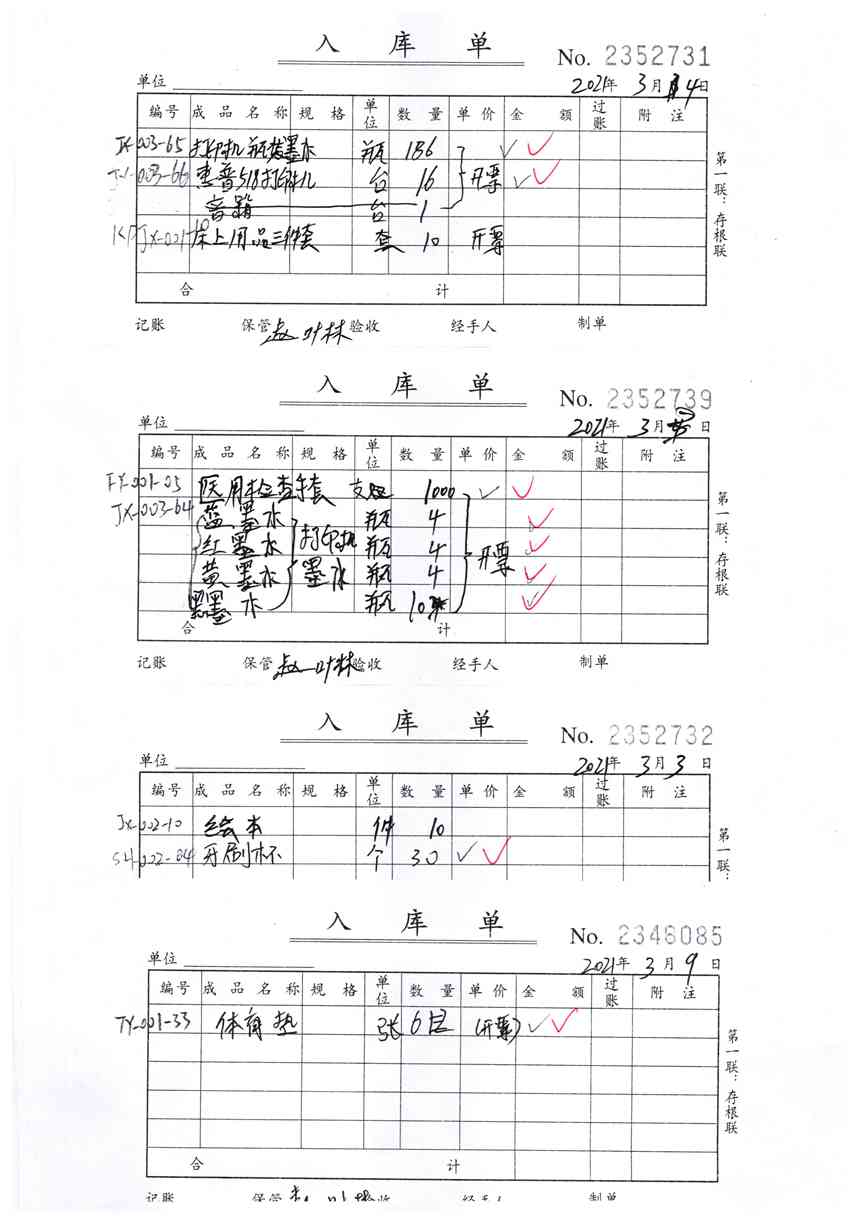 入 库 单
No. 2352731
单位 2021年 3月 4日
编号 成品名称 规格 单位 数量 单价 金额 过账 附注
JX-003-65 打印机瓶装墨水 瓶 186
003-66 惠普518打印机 台 16 开票
音箱 台 1
JX-001-10 床上用品三件套 套 10 开票
合 计
第一联：存根联
记账 保管 赵叶林 验收 经手人 制单
入 库 单
No. 2352739
单位 2021年 3月 日
编号 成品名称 规格 单位 数量 单价 金额 过账 附注
001-05 医用检查手套 支 1000
JX-003-64 蓝墨水 瓶 4
红墨水 打印机 瓶 4
黄墨水 墨水 瓶 4 开票
黑墨水 瓶 10
合 计
第一联：存根联
记账 保管 赵叶林 验收 经手人 制单
入 库 单
No. 2352732
单位 2021年 3月 3日
编号 成品名称 规格 单位 数量 单价 金额 过账 附注
JX-002-10 绘本 件 10
SH-002-04 牙刷杯 个 30
第一联：
入 库 单
No. 2346085
单位 2021年 3月 9日
编号 成品名称 规格 单位 数量 单价 金额 过账 附注
TY-001-33 体育垫 张 6 (开票)
合 计
第一联：存根联
记账 保管 验收 经手人 制单